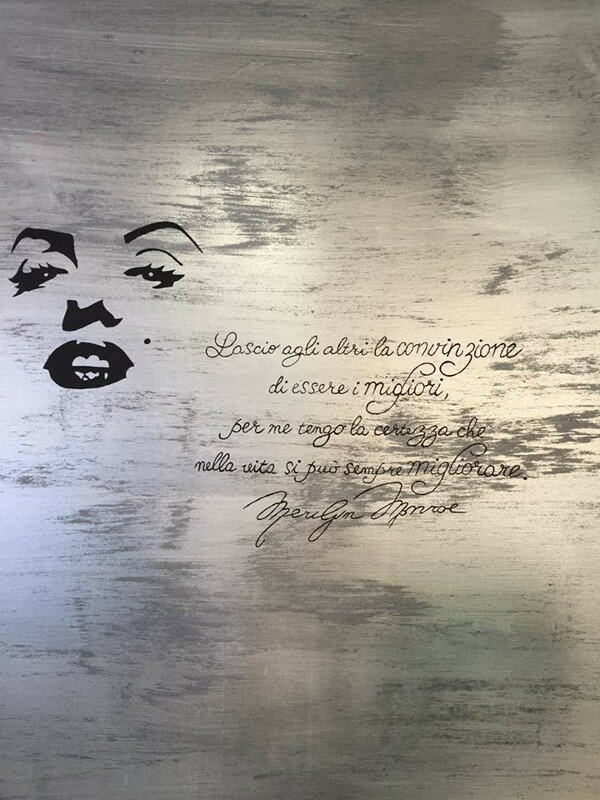 Lascio agli altri la convinzione
di essere i migliori,
per me tengo la certezza che
nella vita si può sempre migliorare.
Merilyn Monroe